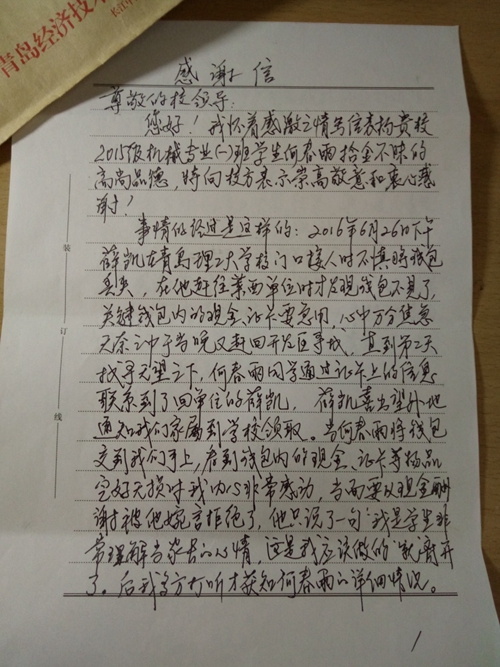 青岛经济技术
感谢信
尊敬的校领导：
您好！我怀着感激之情写信表扬贵校
2015级机械专业(一)班学生何春雨拾金不昧的
高尚品德，时向校方表示崇高敬意和衷心感
谢！
事情的经过是这样的：2016年6月26日下午
薛凯在青岛理工大学校门口接人时不慎将钱包
丢失，在他赶往莱西单位时才发现钱包不见了，
关键钱包内的现金、证卡要急用，心中万分焦急
无奈之中于当晚又返回开发区寻找，直到第二天
找寻无望之下，何春雨同学通过证卡上的信息
联系到了回单位的薛凯，薛凯喜出望外地
通知我们家属到学校领取。当何春雨将钱包
交到我们手上，看到钱包内的现金、证卡等物品
完好无损时我内心非常感动，当面要以现金酬
谢被他婉言拒绝了，他只说了一句“我是学生非
常理解当家长的心情，这是我应该做的”就离开
了。后我多方打听才获知何春雨的详细情况。
装
订
线
1